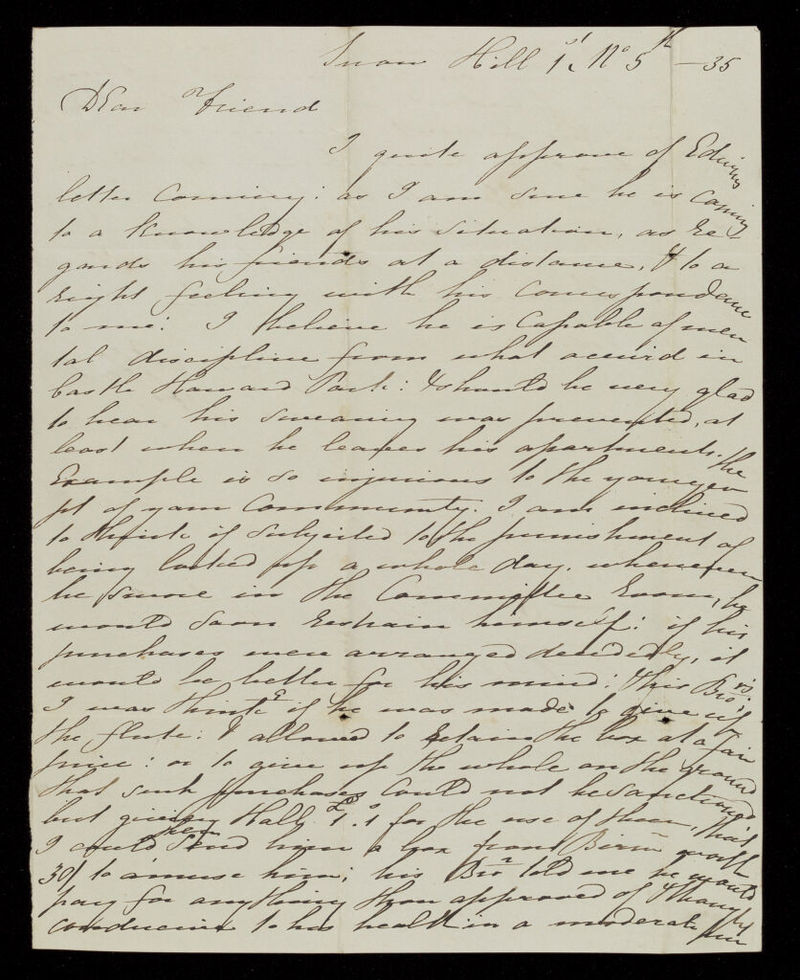 Snow Hill 1st No 5th —35
Dear Friend
I quite approve of Edwins
letter coming: as I am sure he is coming
to a knowledge of his situation, as re-
gards his friends at a distance, & to a
right feeling with his correspondence
to me: I believe he is capable of men
tal discipline from what occurd in
Castle Howard Park: & should be very glad
to hear his swearing was prevented, at
least when he leaves his apartments. the
Example is so injurious to the younger
pt of your Community. I am inclined
to think if subjected to the punishment of
being locked up a whole day. whenever
he swore in the Committee Room, he
would soon restrain himself: if his
purchases were arranged decidedly, it
would be better for his mind: this
I was thinkg if he was made to give up
the flute: & allowed to retain the box at a fair
price: or to give up the whole on the ground
that such purchases could not be sanctioned
but giving Hall £1.1 for the use of them, that
I could then send him a box from Birm worth
30/ to amuse him; his Bror told me he would
pay for anything thou approved of & thought
conducive to his health in a moderate